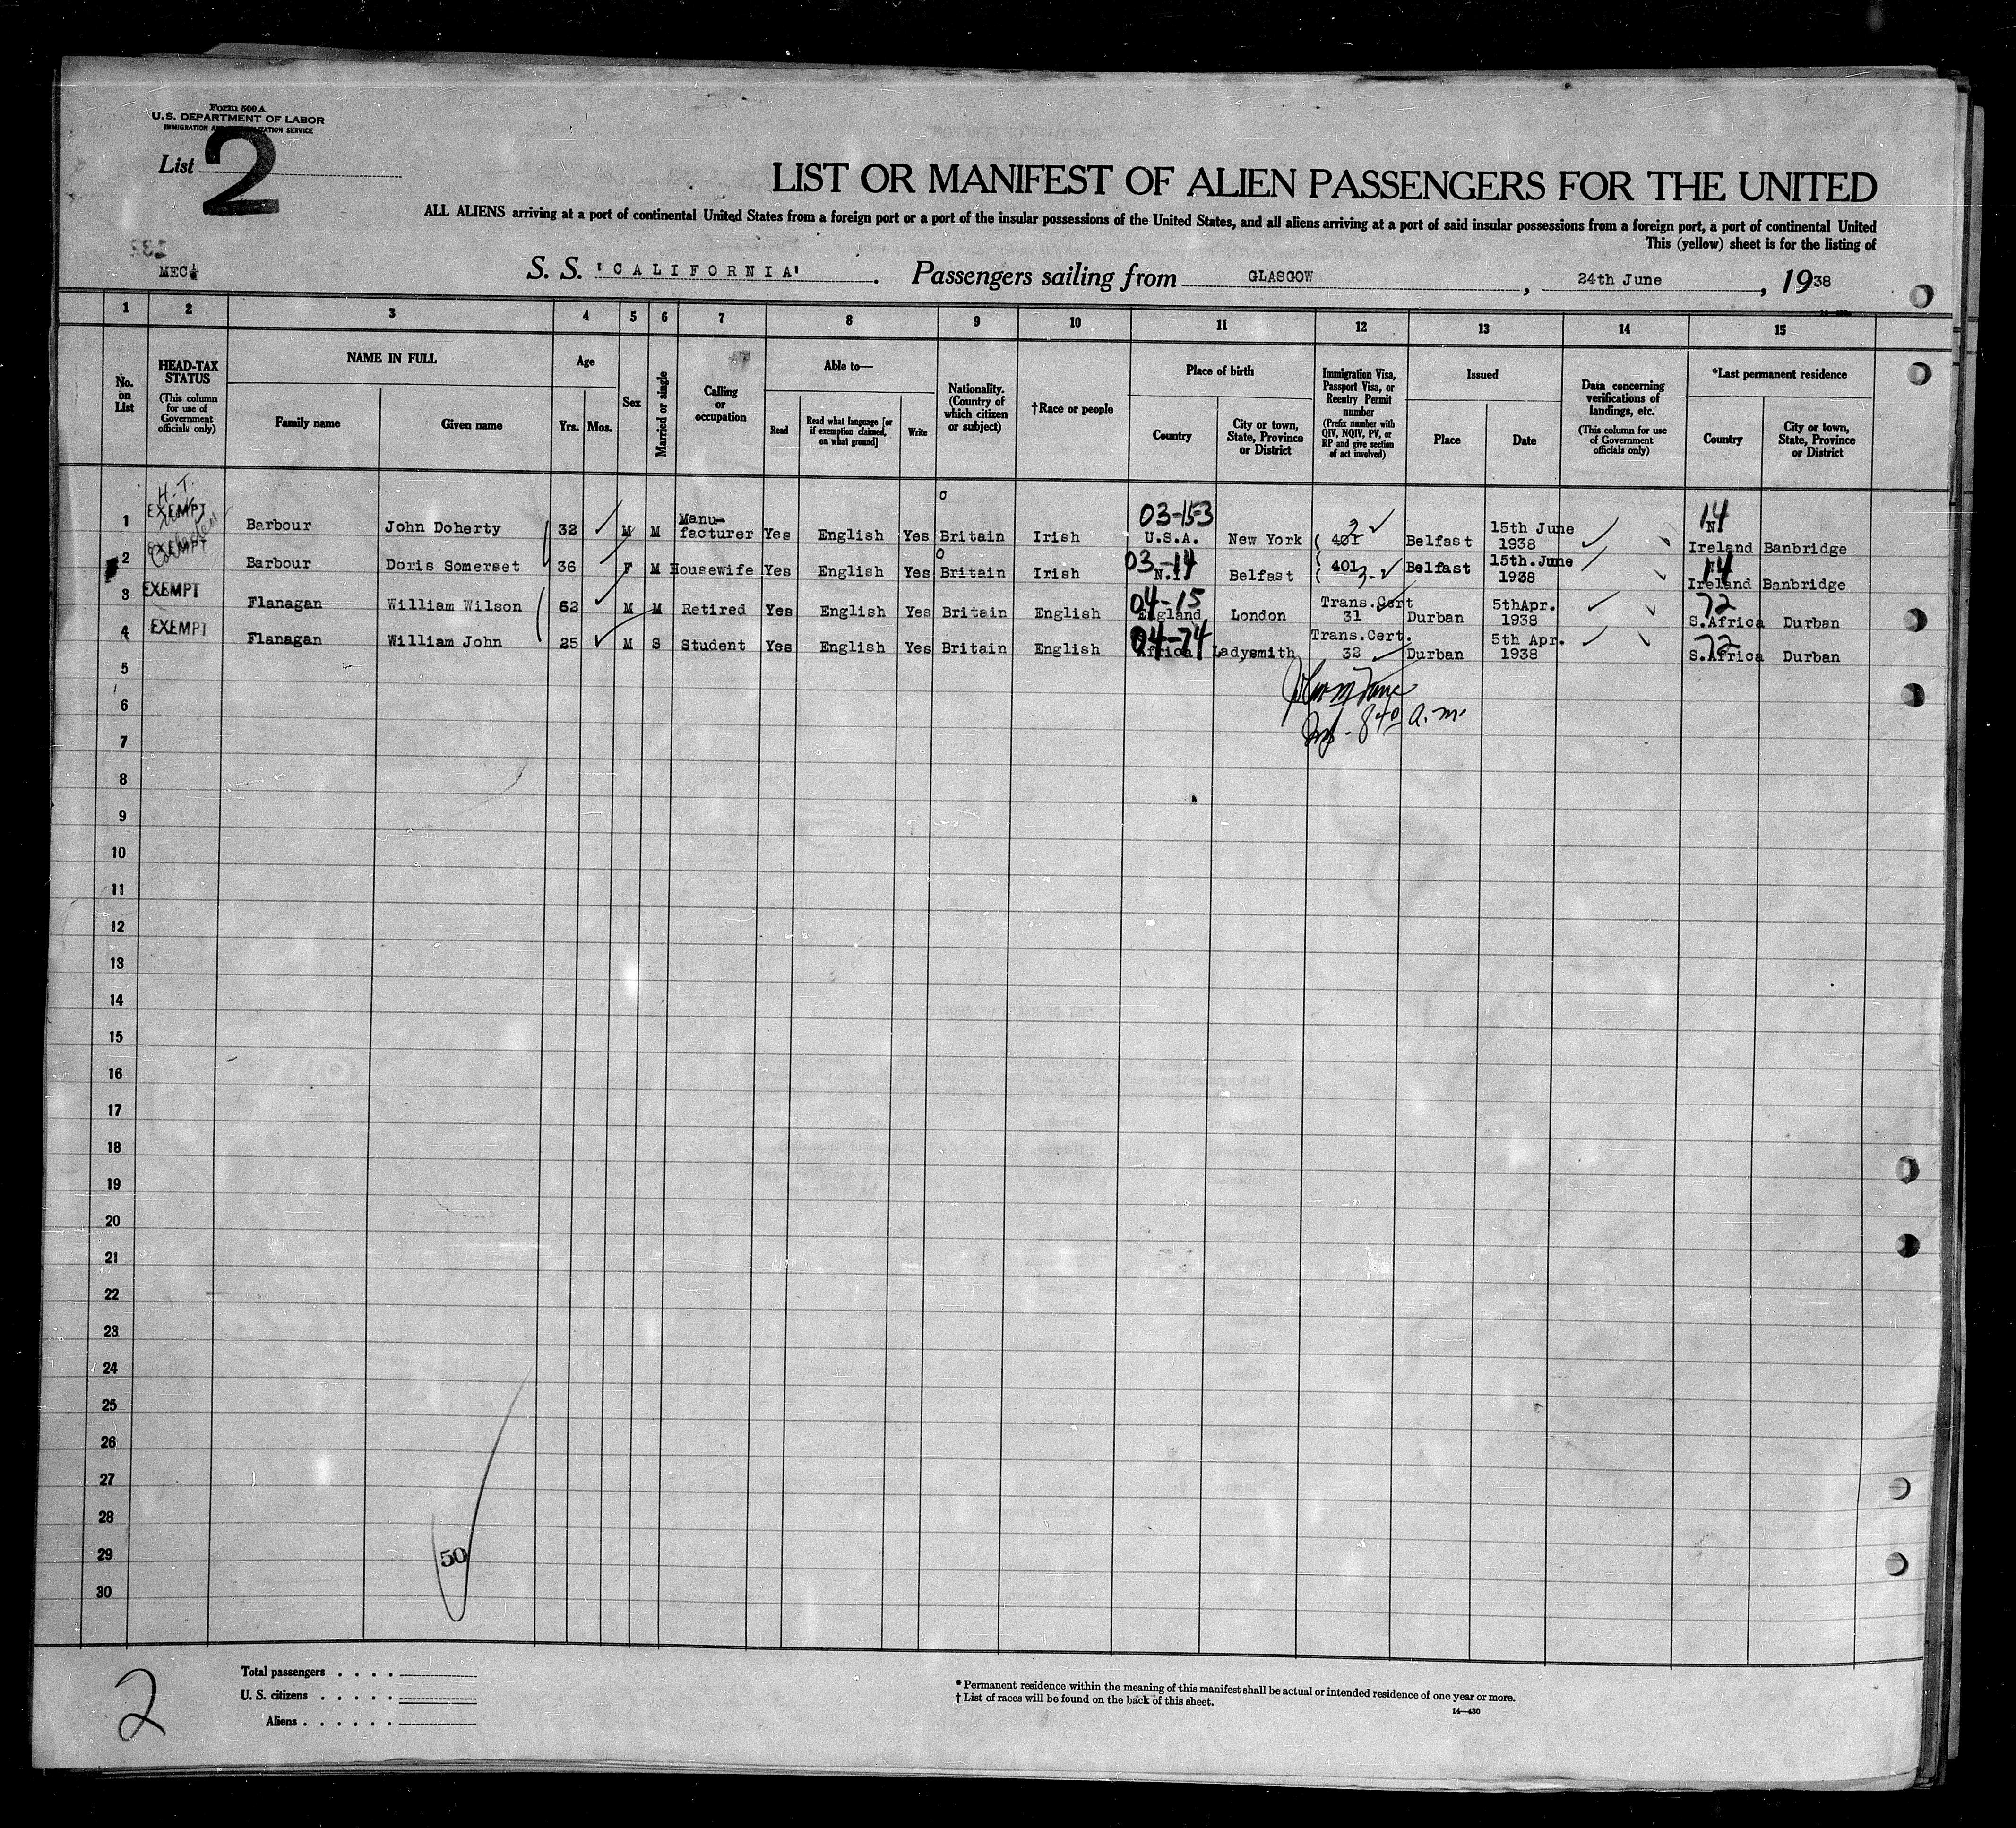 Form 500 A
U.S. DEPARTMENT OF LABOR
IMMIGRATION AND NATURALIZATION SERVICE
List 2
LIST OR MANIFEST OF ALIEN PASSENGERS FOR THE UNITED
ALL ALIENS arriving at a port of continental United States from a foreign port or a port of the insular possessions of the United States, and all aliens arriving at a port of said insular possessions from a foreign port, a port of continental United
This (yellow) sheet is for the listing of
S. S. 'CALIFORNIA'. Passengers sailing from GLASGOW, 24th June, 1938
1 2 3 4 5 6 7 8 9 10 11 12 13 14 15
No. on List
HEAD-TAX STATUS
(This column for use of Government officials only)
NAME IN FULL
Family name Given name
Age
Yrs. Mos.
Sex
Married or single
Calling or occupation
Able to—
Read
Read what language [or if exemption claimed, on what ground]
Write
Nationality. (Country of which citizen or subject)
†Race or people
Place of birth
Country
City or town, State, Province or District
Immigration Visa, Passport Visa, or Reentry Permit number
(Prefix number with QIV, NQIV, PV, or RP and give section of act involved)
Issued
Place Date
Data concerning verifications of landings, etc.
(This column for use of Government officials only)
*Last permanent residence
Country
City or town, State, Province or District
H.T.
1 EXEMPT Barbour John Doherty 32 M M Manu-facturer Yes English Yes Britain Irish 03-153 U.S.A. New York 401 3 Belfast 15th June 1938 14 N. Ireland Banbridge
2 EXEMPT Barbour Doris Somerset 36 F M Housewife Yes English Yes Britain Irish 03-14 N.I. Belfast 401 3 Belfast 15th.June 1938 14 Ireland Banbridge
3 EXEMPT Flanagan William Wilson 62 M M Retired Yes English Yes Britain English 04-15 England London Trans.Cert 31 Durban 5thApr. 1938 72 S.Africa Durban
4 EXEMPT Flanagan William John 25 M S Student Yes English Yes Britain English 04-74 Africa Ladysmith Trans.Cert. 32 Durban 5th Apr. 1938 72 S.Africa Durban
5
6
8 40 a.m.
7
8
9
10
11
12
13
14
15
16
17
18
19
20
21
22
23
24
25
26
27
28
29
50
30
2
Total passengers . . . .
U. S. citizens . . . . .
Aliens . . . . . .
* Permanent residence within the meaning of this manifest shall be actual or intended residence of one year or more.
† List of races will be found on the back of this sheet.
14—430